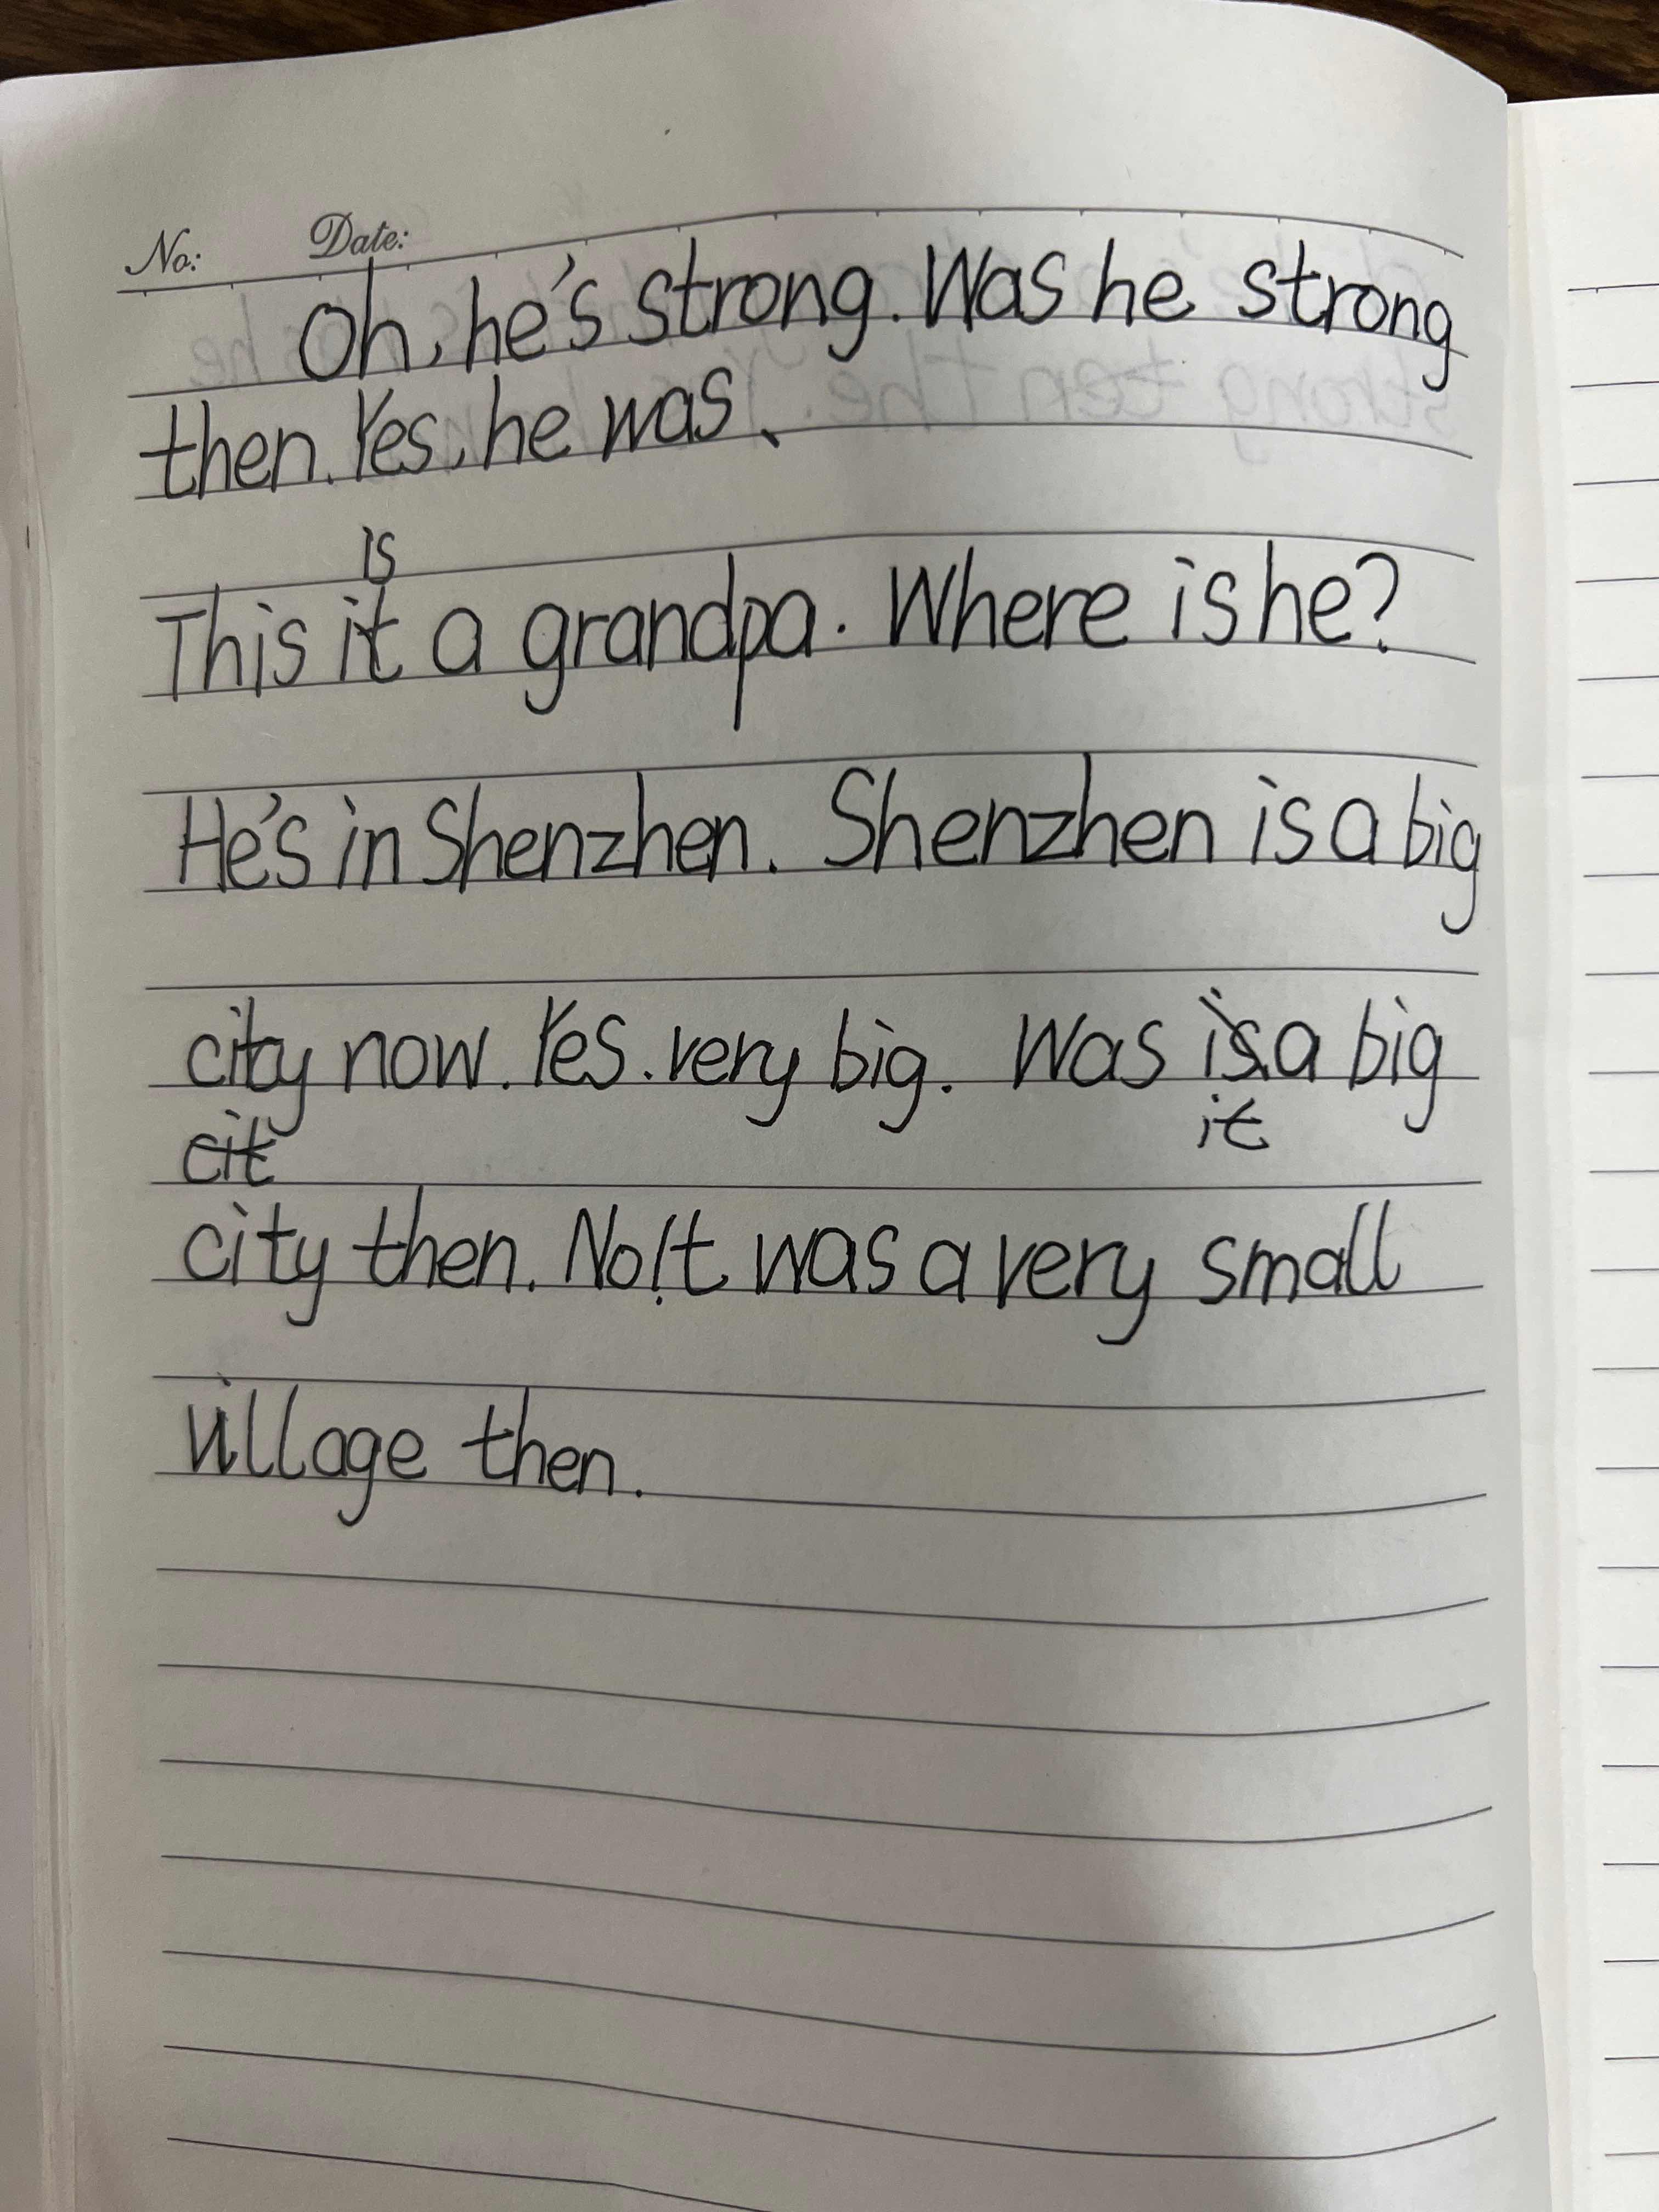 No: Date:
Oh, he's strong. Was he strong
then. Yes, he was.
is
This it a grandpa. Where is he?
He's in Shenzhen. Shenzhen is a big
city now. Yes. very big. Was is a big
cit it
city then. No! It was a very small
village then.